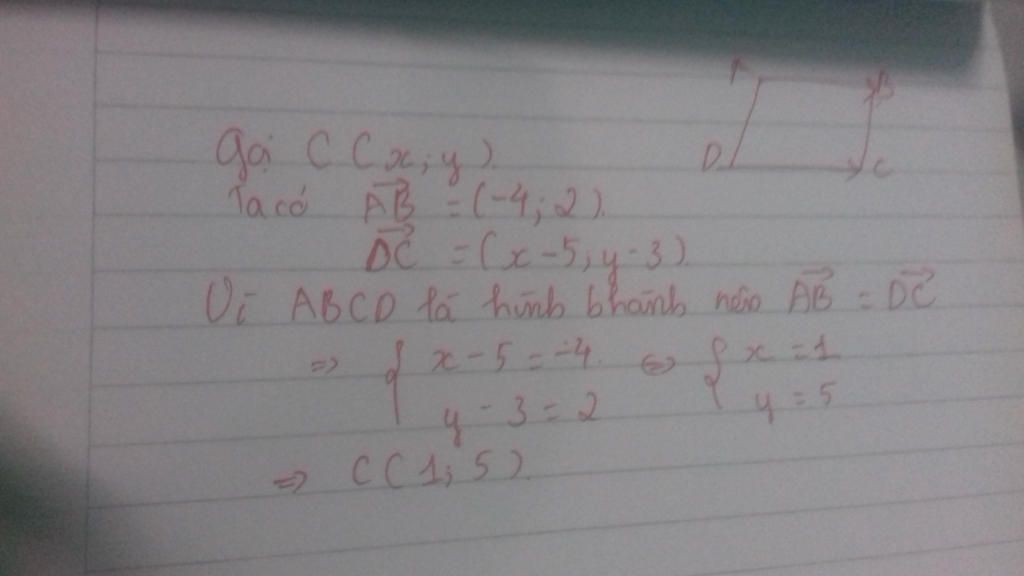 A B
D C
Gọi C (x; y).
Ta có \overrightarrow{AB} = (-4; 2).
\overrightarrow{DC} = (x - 5; y - 3).
Vì ABCD là hình bhành nên \overrightarrow{AB} = \overrightarrow{DC}
⇒ { x - 5 = -4. ⇔ { x = 1
y - 3 = 2 y = 5
⇒ C (1; 5).